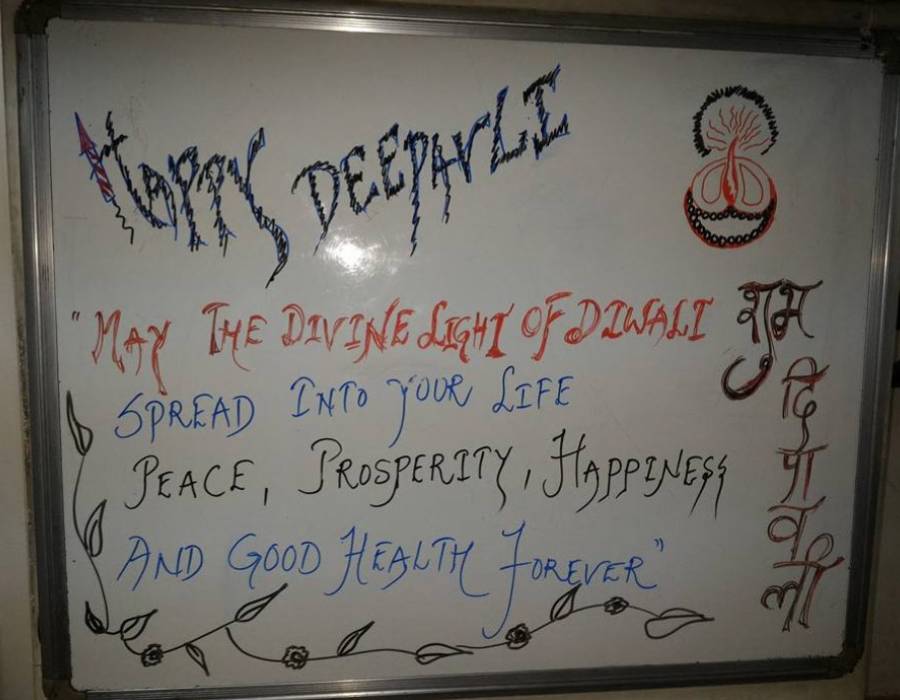 HAPPY DEEPAVLI
"MAY THE DIVINE LIGHT OF DIWALI
SPREAD INTO YOUR LIFE
PEACE, PROSPERITY, HAPPINESS
AND GOOD HEALTH FOREVER"
शुभ
दि
पा
व
ली